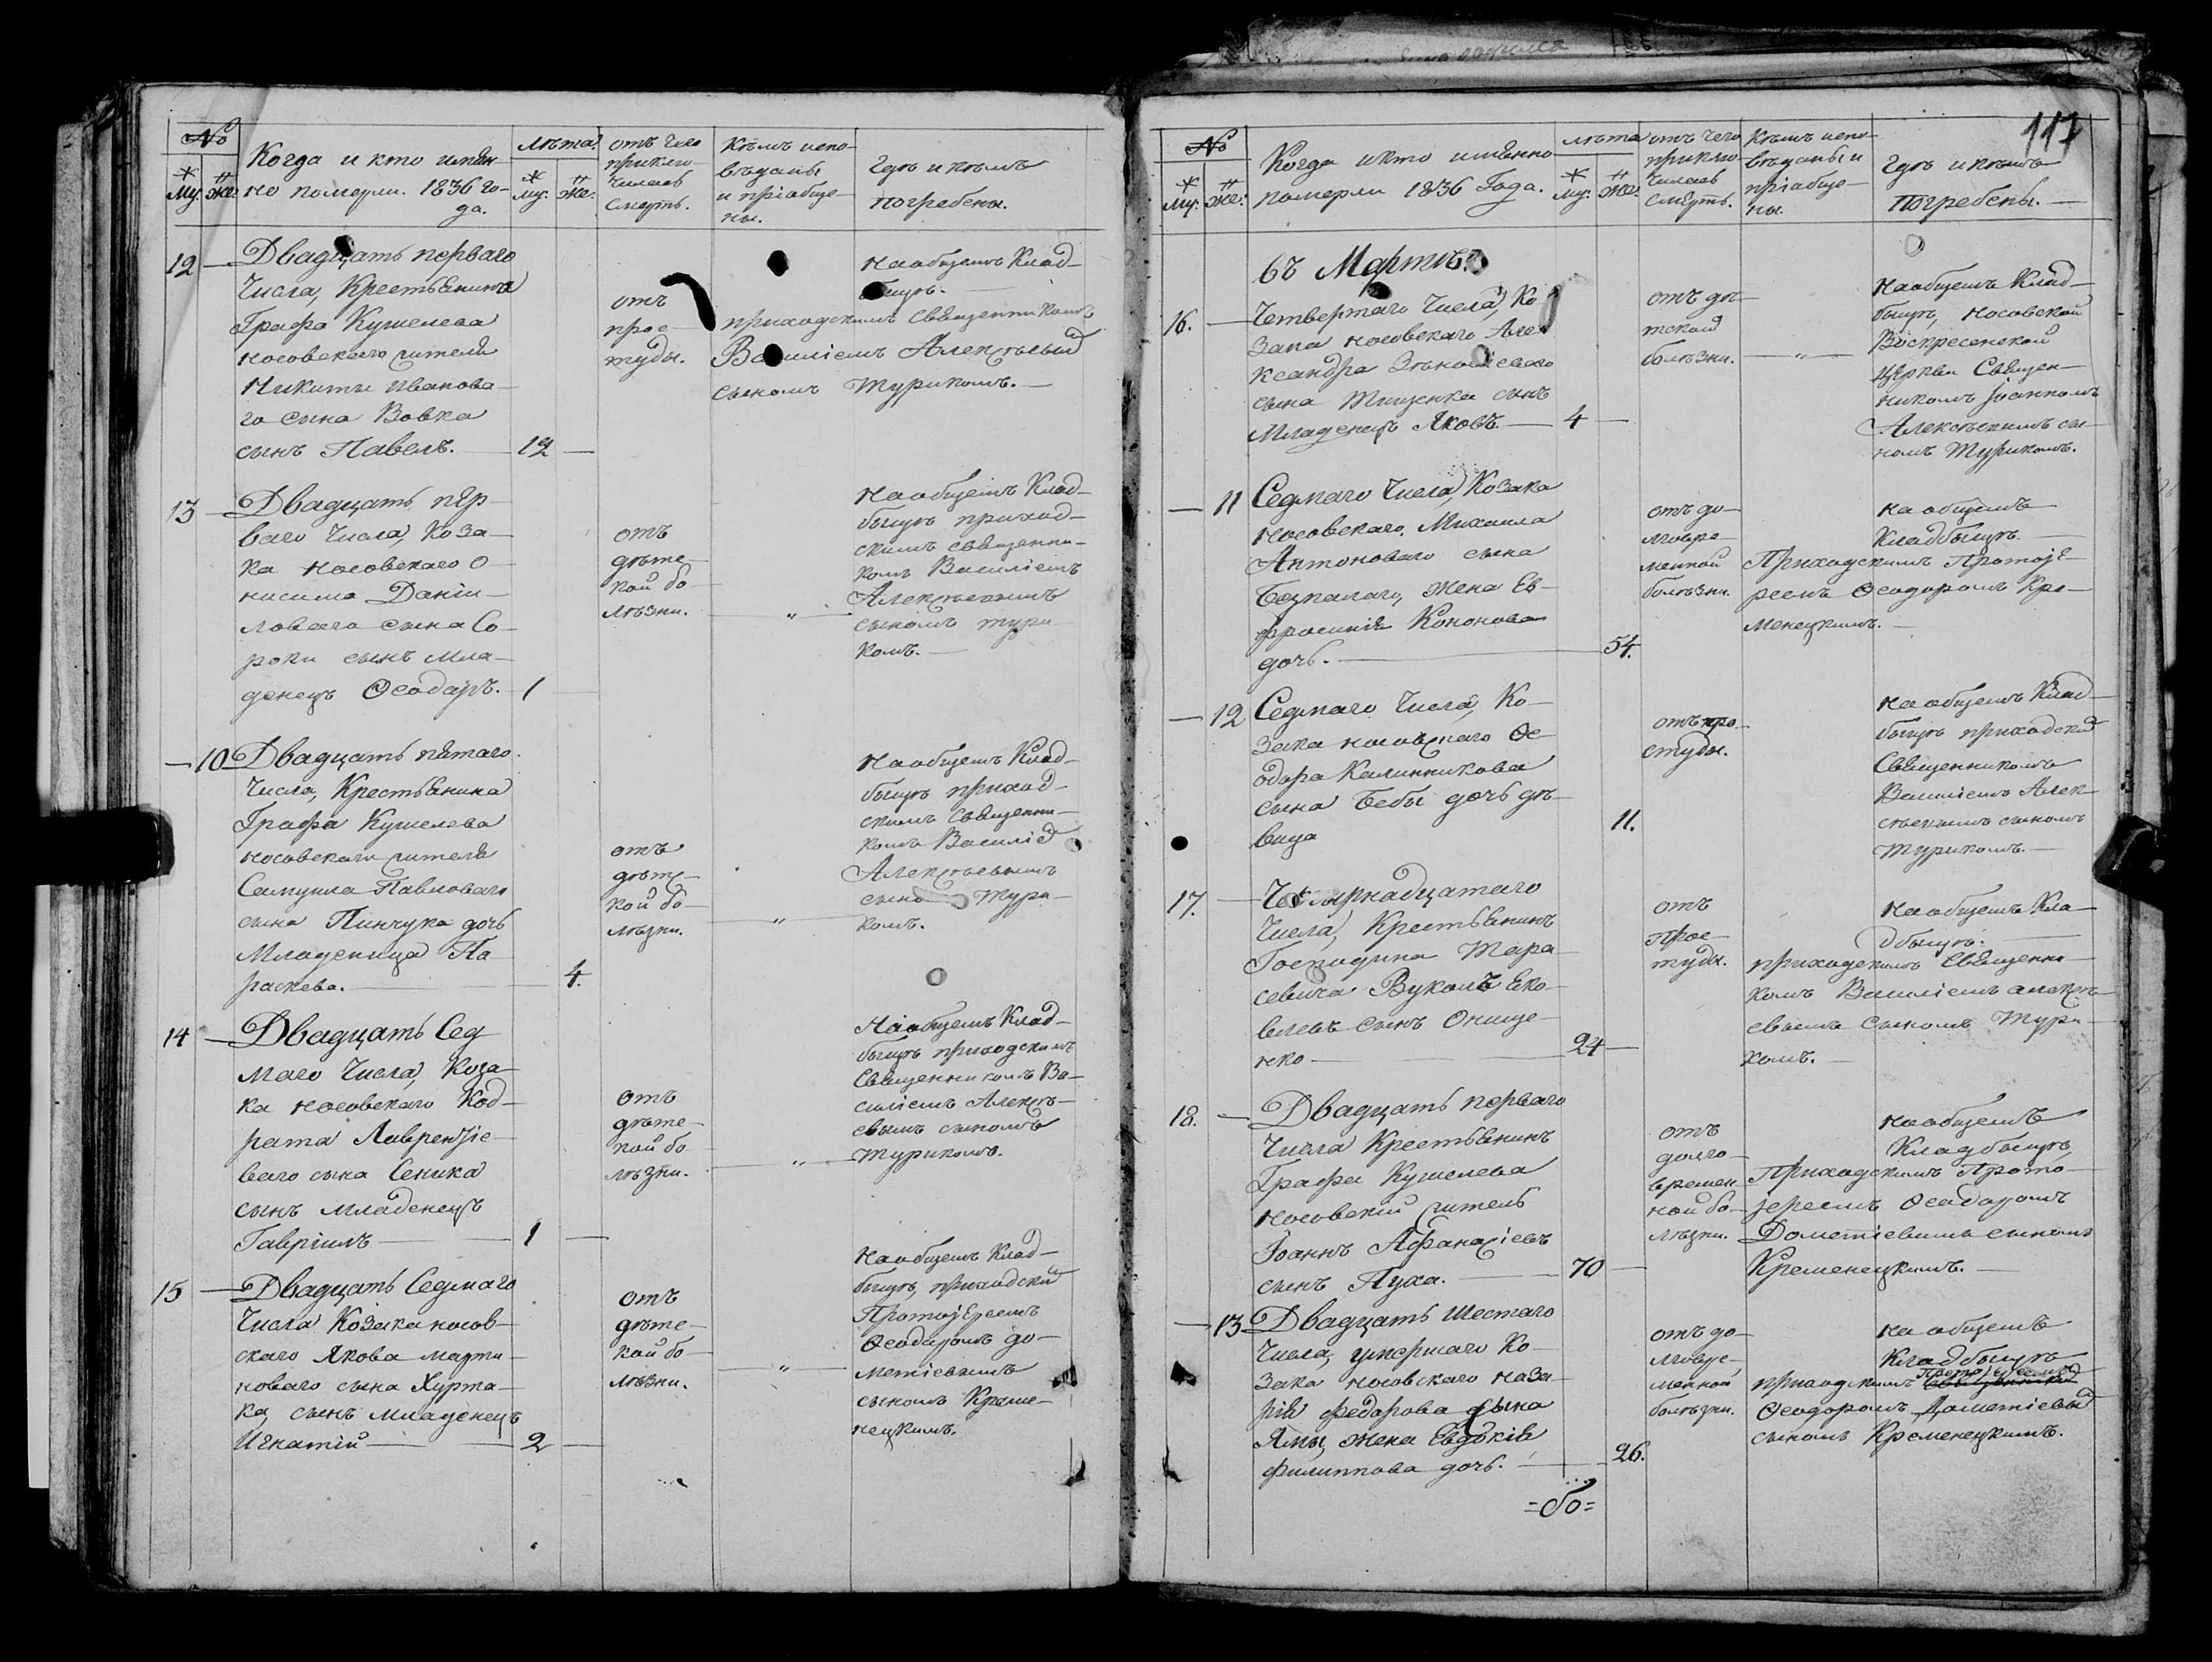 №
Му. Же.
Когда и кто имян-
но померли. 1836 го-
да.
лѣта
му. же.
отъ чего
приклю-
чилась
смерть.
Кѣмъ испо-
вѣданы
и пріобще-
ны.
Гдѣ и кѣмъ
погребены.
12
Двадцать перваго
Числа, Крестьянина
Графа Кушелева
носовскаго жителя
Никиты Иванова-
го сына Вовка
сынъ Павелъ. 12
отъ
прос-
туды.
приходскимъ Священникомъ
Василіемъ Алексѣевый
сыномъ Туриковъ.
На общемъ Клад-
бищѣ.
13
Двадцать пер-
ваго Числа, Коза-
ка носовскаго О-
нисима Даніи-
ловаго сына Со-
роки сынъ мла-
денецъ Ѳеодоръ. 1
отъ
дѣтс-
кой бо-
лѣзни.
"
На общемъ Клад-
бищѣ приход-
скимъ священни-
комъ Василіемъ
Алексѣевымъ
сыномъ тури-
комъ.
10
Двадцать пятаго
Числа, Крестьянина
Графа Кушелева
носовскаго жителя
Самуила Павловаго
сына Пинчука дочь
Младеница Па
раскева. 4.
отъ
дѣтс-
кой бо-
лѣзни.
"
На общемъ Клад-
бищѣ приход-
скимъ Священни-
комъ Василіе
Алексѣевымъ
сыно Тури-
комъ.
14
Двадцать Сед
маго Числа, Коза-
ка носовскаго Код-
рата Лаврентіе-
ваго сына Сеника
сынъ младенецъ
Гавріилъ 1
отъ
дѣтс-
кой бо-
лѣзни.
"
На общемъ Клад-
бищѣ приходскимъ
Священникомъ Ва-
силіемъ Алексѣ-
евымъ сыномъ
Туриковъ.
15
Двадцать Седмаго
Числа Козака носов-
скаго Якова марти-
новаго сына Хурта-
ка, сынъ младенецъ
Игнатій 2
отъ
дѣтс-
кой бо-
лѣзни.
"
На общемъ Клад-
бищѣ, приходскій
Протоіереемъ
Ѳеодоромъ до-
метіевымъ
сыномъ Креме-
нецкимъ.
117
№
Му. Же.
Когда и кто именно
померли 1836 Года.
лѣта
му. Же.
отъ чего
приклю-
чилась
смерть.
Кѣмъ испо-
вѣданы и
пріобще-
ны.
Гдѣ и кѣмъ
Погребены.
въ Мартѣ.
16.
Четвертаго Числа, Ко
зака носовскаго Алек
ксандра сына Тищенка сынъ
Младенецъ Яковъ. 4
отъ дѣ-
тской
болѣзни.
"
На общемъ Клад-
бищѣ, носовской
Воскресенской
Церкви Священ-
никомъ Іоанномъ
Алексѣевымъ сы-
номъ Туриковъ.
11
Седмаго Числа, Козака
носовскаго, Михаила
Антоноваго сына
Безпалаго, жена Ев-
фросинія Кононова
дочь. 54.
отъ до-
лговре-
менной
болѣзни.
Приходскимъ Протоіе-
реемъ Ѳеодоромъ Кре-
менецкимъ.
на общемъ
Кладбищѣ.
12
Седмаго Числа, Ко-
зака носовскаго Ѳе-
одора Калинникова
сына Бебы дочь дѣ-
вица 11.
отъ про-
студы.
На общемъ Клад-
бищѣ приходскій
Священникомъ
Василіемъ Алек-
сѣевымъ сыномъ
Туриковъ.
17.
Четырнадцатаго
Числа, Крестьянинъ
Господина Тара-
севича Вуколъ Яко-
влевъ сынъ Онище-
нко 24
отъ
прос-
туды.
приходскимъ Священни-
комъ Василіемъ алексѣ-
евымъ сыномъ Тури-
комъ.
На общемъ Кла-
дбищѣ.
18.
Двадцать перваго
Числа Крестьянинъ
Графа Кушелева
носовскій житель
Іоаннъ Афанасіевъ
сынъ Пуха. 70
отъ
долго-
времен
ной бо-
лѣзни.
Приходскимъ Прото-
іереемъ Ѳеодоромъ
Дометіевымъ сыномъ
Кременецкимъ.
на общемъ
Кладбищѣ
13
Двадцать Шестаго
Числа, умершаго Ко-
зака носовскаго Наза-
рія федорова сына
Ямы, жена Евдокія
филиппова дочь. 26.
отъ до-
лговре-
менной
болѣзни.
приходскимъ Протоіереемъ
Ѳеодоромъ Дометіевый
сыномъ Кременецкимъ.
на общемъ
Кладбищѣ